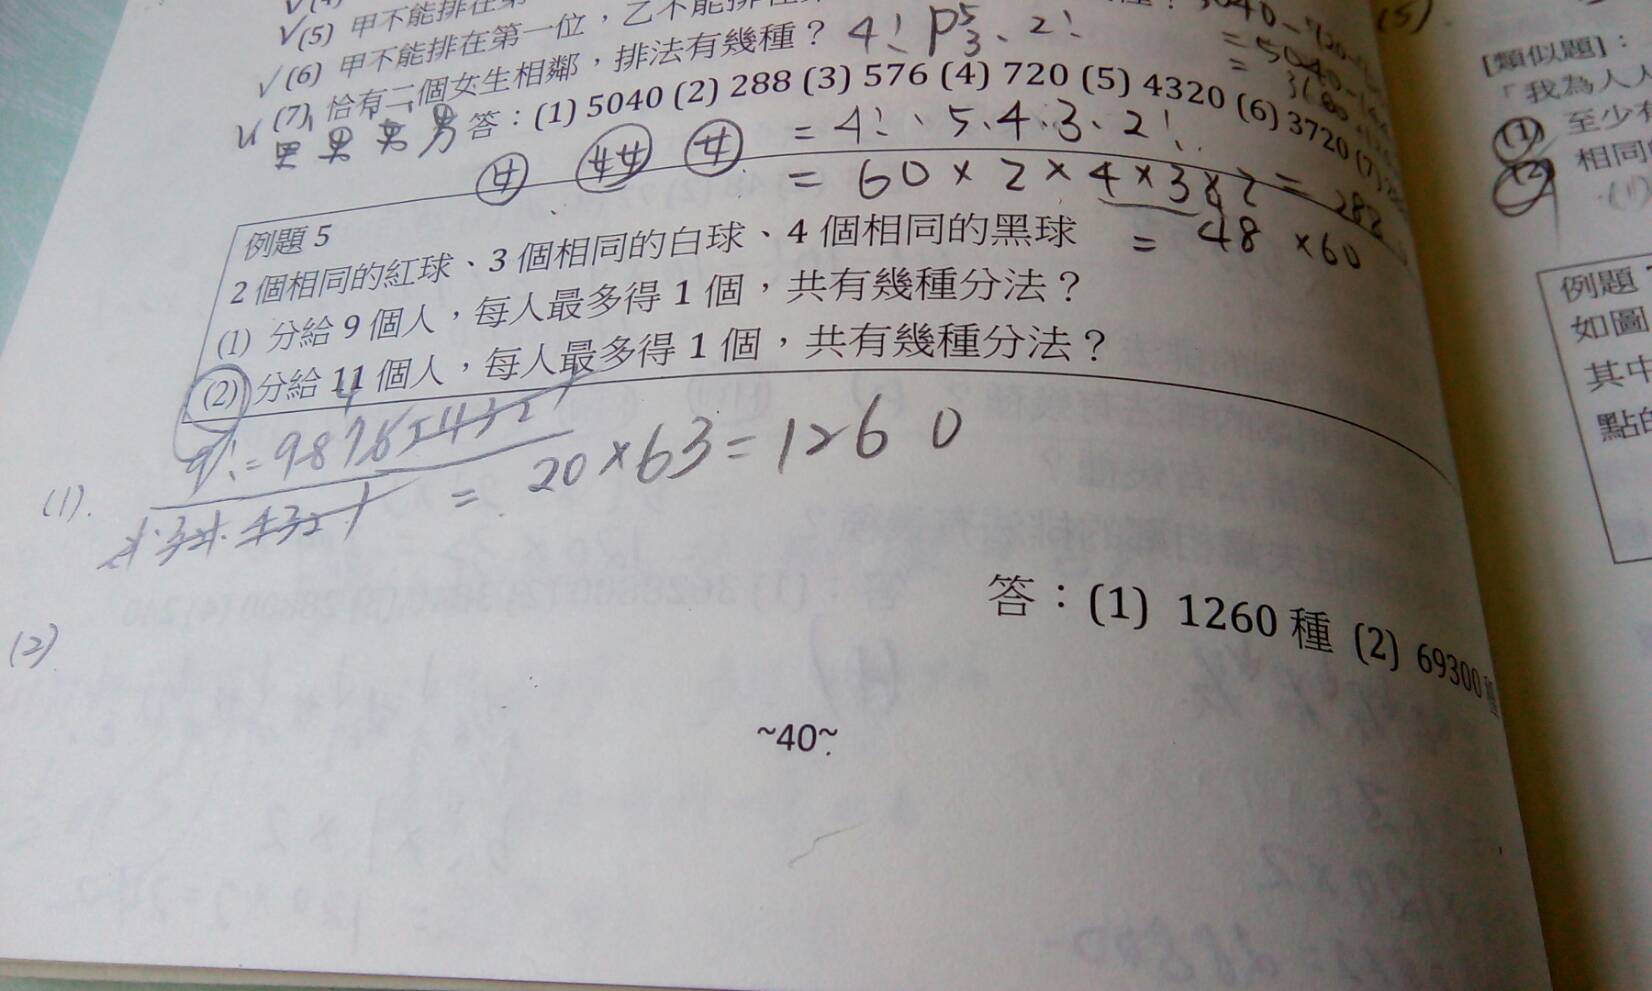 (5) 甲不能排在第
(6) 甲不能排在第一位，乙不能排在
(7) 恰有二個女生相鄰，排法有幾種？ 4! P⁵₃、2!
答：(1) 5040 (2) 288 (3) 576 (4) 720 (5) 4320 (6) 3720 (7)
男 男 男 男
女 女女 女 = 4!、5、4、3、2!
= 60 × 2 × 4 × 3 × 2 = 288
= 48 × 60
例題 5
2 個相同的紅球、3 個相同的白球、4 個相同的黑球
(1) 分給 9 個人，每人最多得 1 個，共有幾種分法？
(2) 分給 11 個人，每人最多得 1 個，共有幾種分法？
(1).
= 20 × 63 = 1260
答：(1) 1260 種 (2) 69300
(2)
~40~
(5)
[類似題]：
「我為人人
(1) 至少有
(2) 相同
例題
如圖
其中
點的